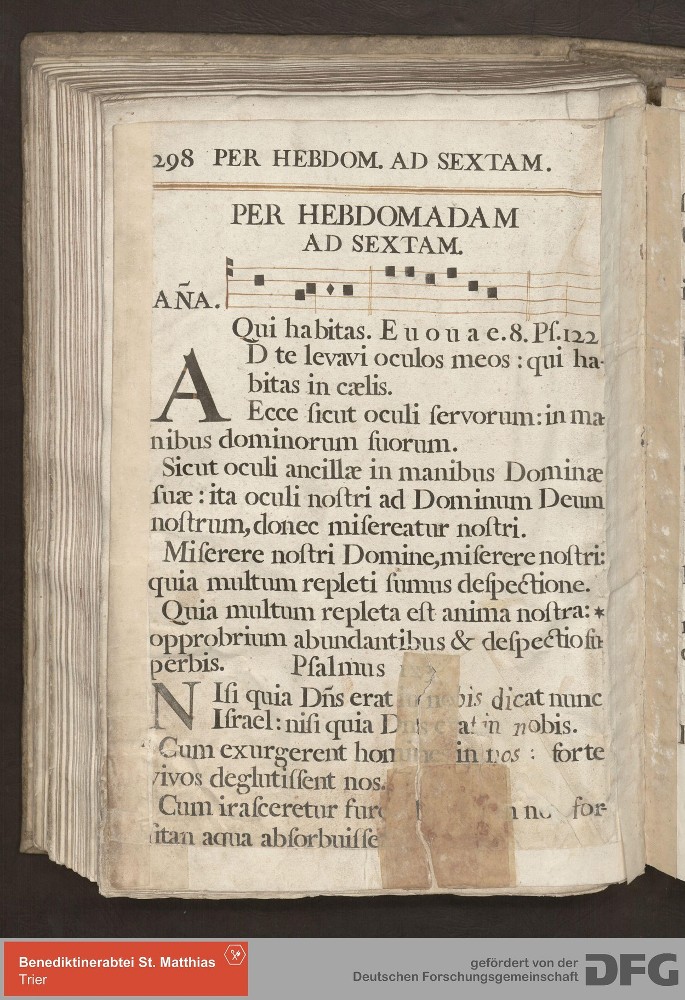 298 PER HEBDOM. AD SEXTAM.
PER HEBDOMADAM
AD SEXTAM.
AÑA.
Qui habitas. E u o u a e. 8. Pſ. 122
AD te levavi oculos meos : qui ha-
bitas in cælis.
Ecce ſicut oculi ſervorum: in ma-
nibus dominorum ſuorum.
Sicut oculi ancillæ in manibus Dominæ
ſuæ : ita oculi noſtri ad Dominum Deum
noſtrum, donec miſereatur noſtri.
Miſerere noſtri Domine, miſerere noſtri:
quia multum repleti ſumus deſpectione.
Quia multum repleta eſt anima noſtra: *
opprobrium abundantibus & deſpectio ſu-
perbis. Pſalmus
NIſi quia Dñs erat in nobis dicat nunc
Iſrael: niſi quia erat in nobis.
Cum exurgerent in nos : forte
vivos deglutiſſent nos.
Cum iraſceretur for-
ſitan aqua
Benediktinerabtei St. Matthias
Trier
gefördert von der
Deutschen Forschungsgemeinschaft DFG